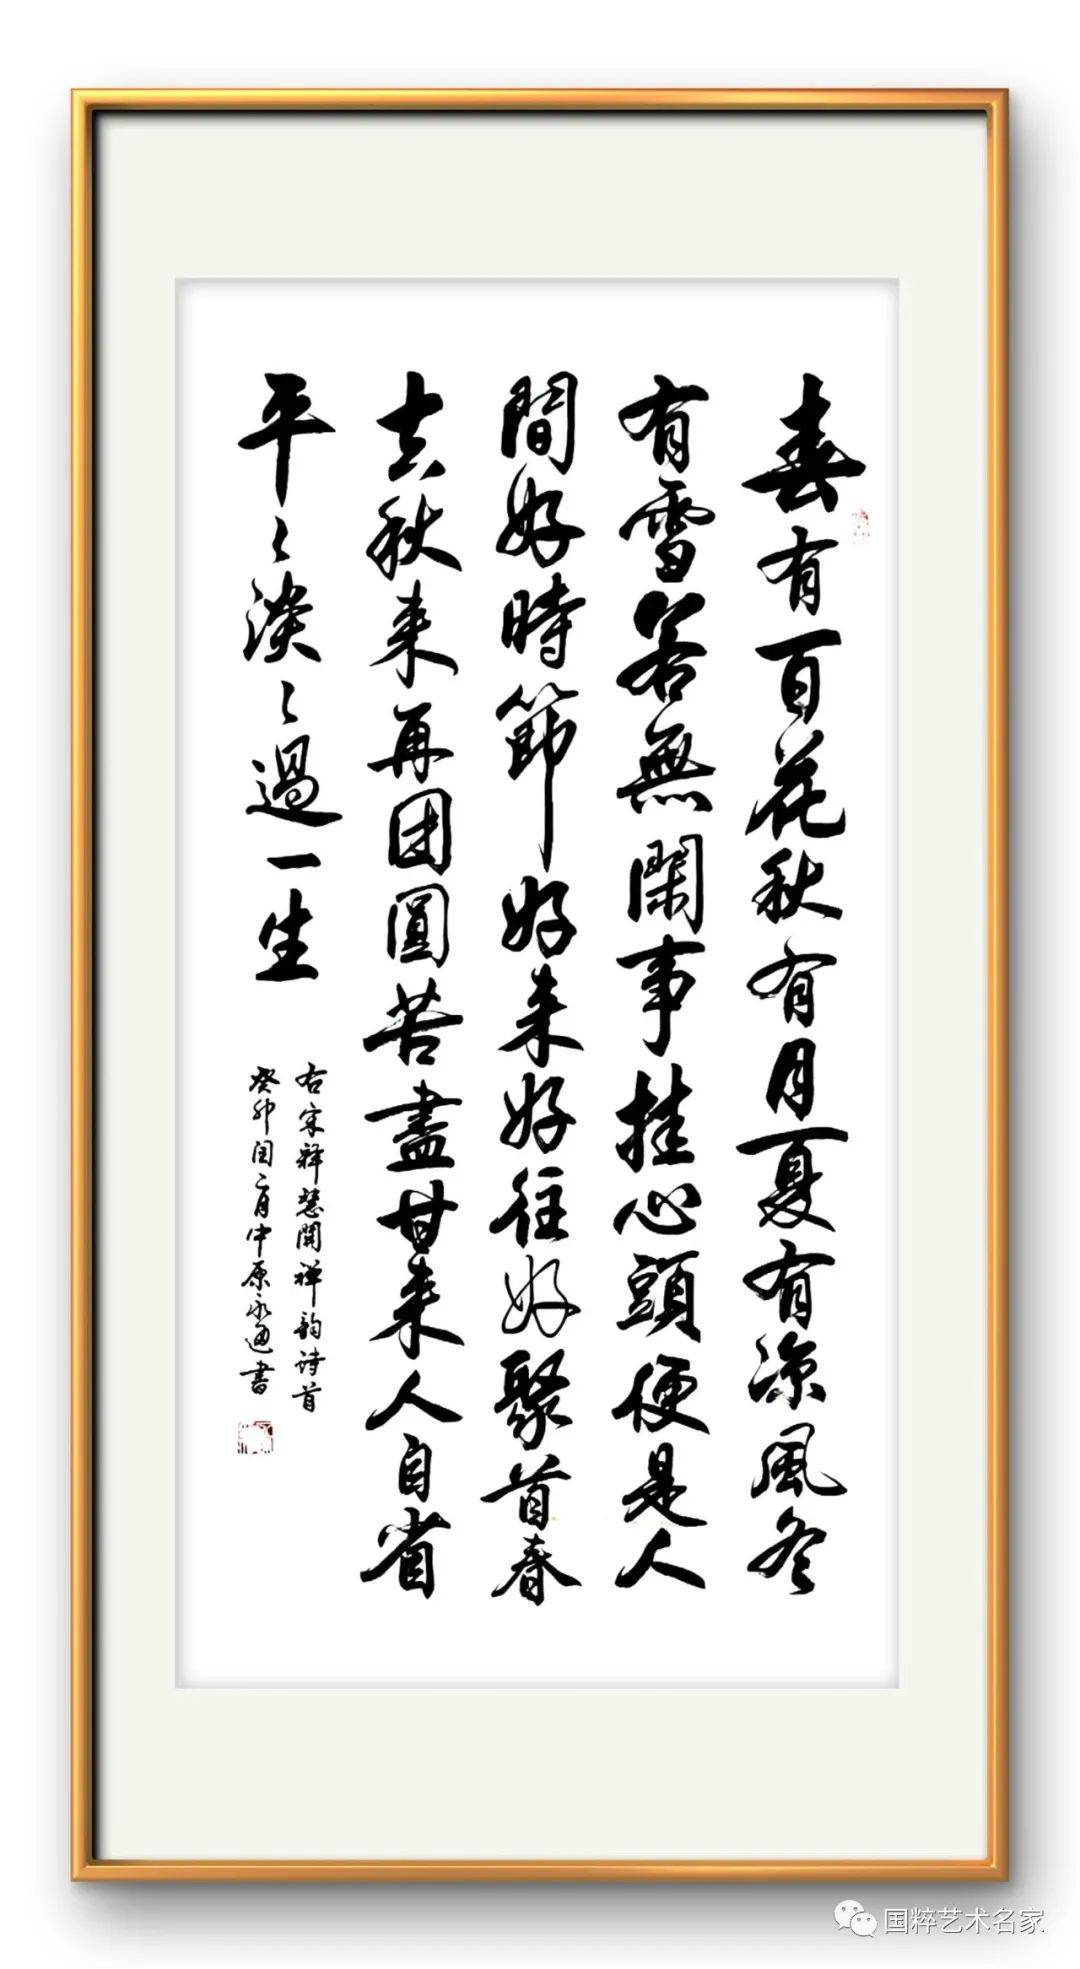 春有百花秋有月夏有凉風冬
有雪若無閑事挂心頭便是人
間好時節好来好往好聚首春
去秋来再团圓苦盡甘来人自省
平々淡々過一生
右宋释慧開禅韵诗首
癸卯闰二月中原永通書
国粹艺术名家